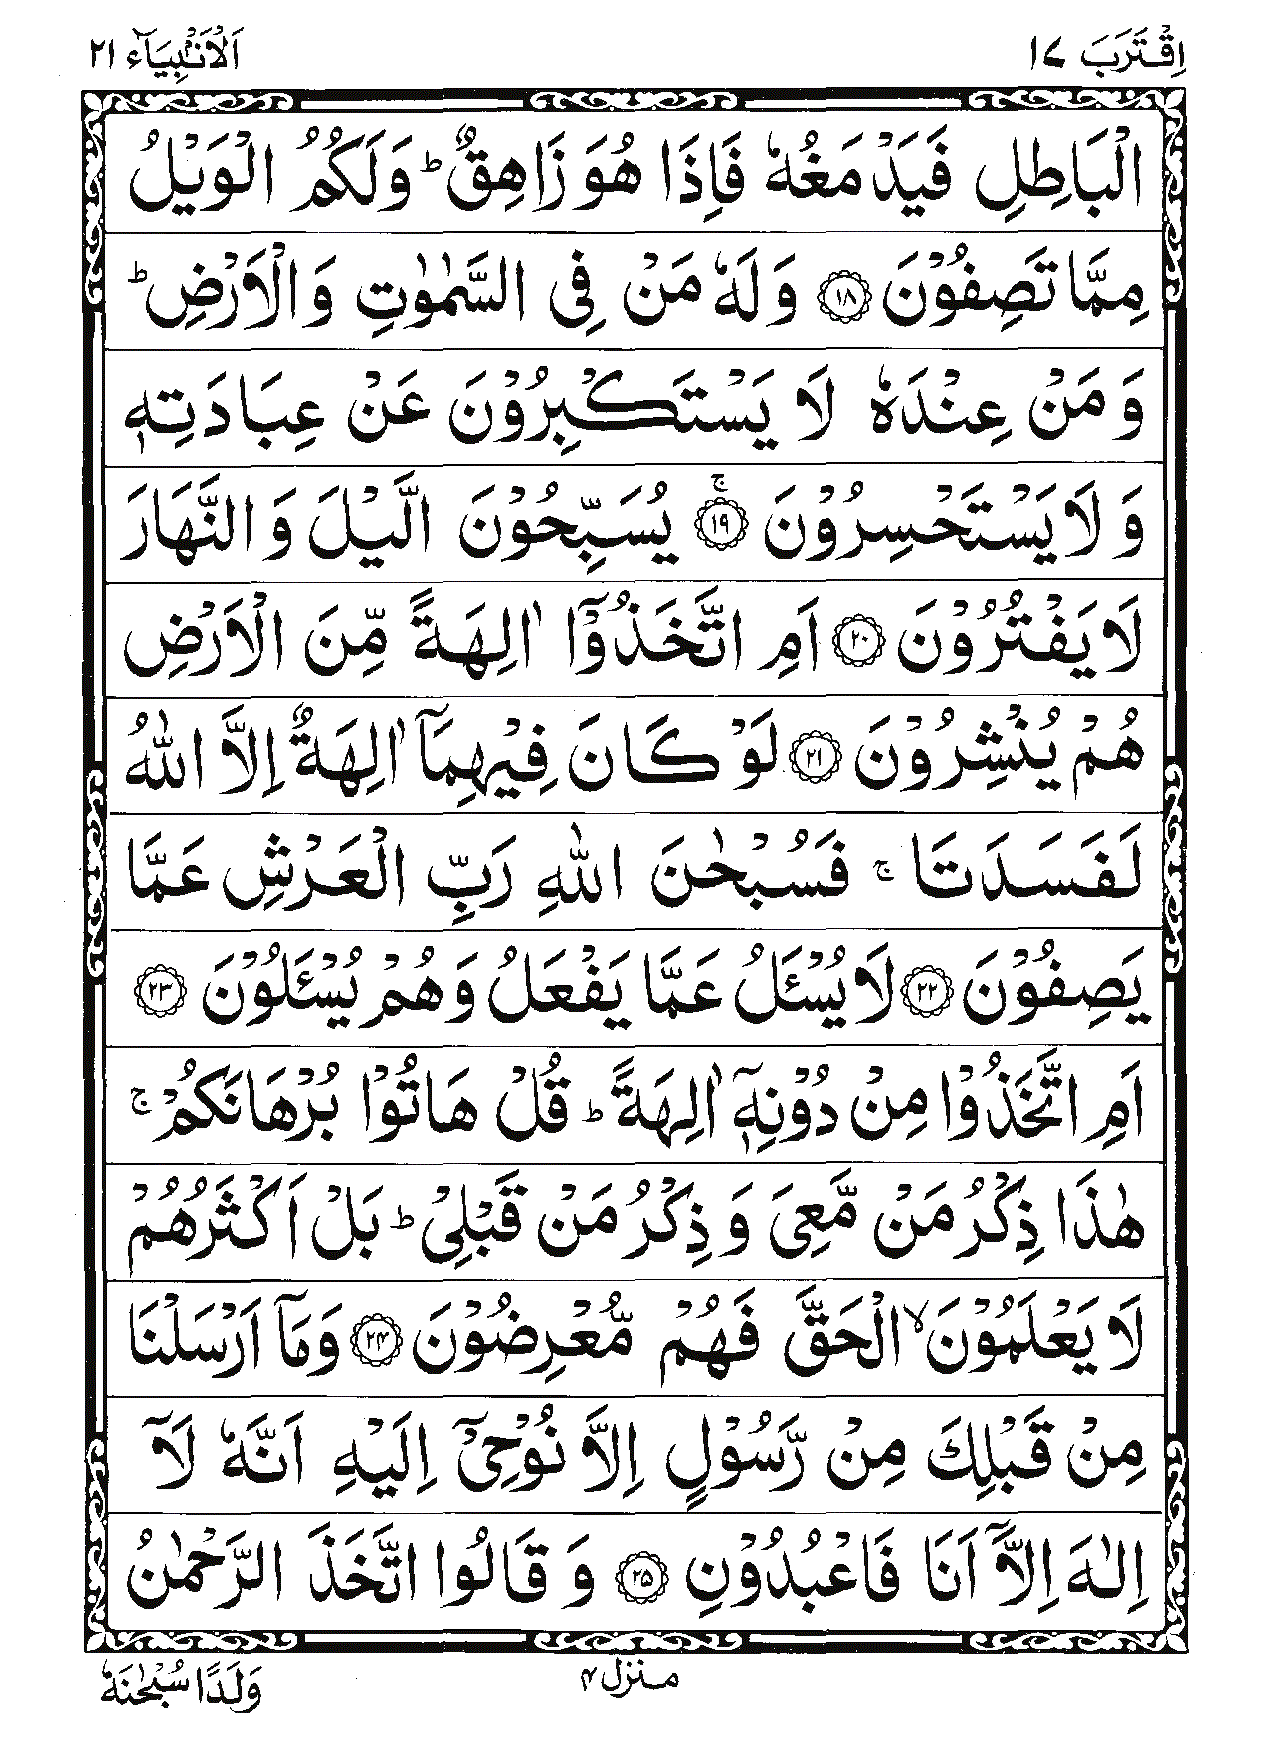 اِقْتَرَبَ ۱۷ اَلْاَنْۢبِيَآء ۲۱
الْبَاطِلِ فَيَدْمَغُهٗ فَاِذَا هُوَ زَاهِقٌ ؕ وَلَكُمُ الْوَيْلُ
مِمَّا تَصِفُوْنَ ۝۱۸ وَلَهٗ مَنْ فِى السَّمٰوٰتِ وَالْاَرْضِ ؕ
وَمَنْ عِنْدَهٗ لَا يَسْتَكْبِرُوْنَ عَنْ عِبَادَتِهٖ
وَلَا يَسْتَحْسِرُوْنَ ۝۱۹ۚ يُسَبِّحُوْنَ الَّيْلَ وَالنَّهَارَ
لَا يَفْتُرُوْنَ ۝۲۰ اَمِ اتَّخَذُوْۤا اٰلِهَةً مِّنَ الْاَرْضِ
هُمْ يُنْشِرُوْنَ ۝۲۱ لَوْ كَانَ فِيْهِمَاۤ اٰلِهَةٌ اِلَّا اللّٰهُ
لَفَسَدَتَا ۚ فَسُبْحٰنَ اللّٰهِ رَبِّ الْعَرْشِ عَمَّا
يَصِفُوْنَ ۝۲۲ لَا يُسْـَٔلُ عَمَّا يَفْعَلُ وَهُمْ يُسْـَٔلُوْنَ ۝۲۳
اَمِ اتَّخَذُوْا مِنْ دُوْنِهٖۤ اٰلِهَةً ؕ قُلْ هَاتُوْا بُرْهَانَكُمْ ۚ
هٰذَا ذِكْرُ مَنْ مَّعِىَ وَذِكْرُ مَنْ قَبْلِىْ ؕ بَلْ اَكْثَرُهُمْ
لَا يَعْلَمُوْنَ ۙ الْحَقَّ فَهُمْ مُّعْرِضُوْنَ ۝۲۴ وَمَاۤ اَرْسَلْنَا
مِنْ قَبْلِكَ مِنْ رَّسُوْلٍ اِلَّا نُوْحِىْۤ اِلَيْهِ اَنَّهٗ لَاۤ
اِلٰهَ اِلَّاۤ اَنَا فَاعْبُدُوْنِ ۝۲۵ وَقَالُوا اتَّخَذَ الرَّحْمٰنُ
منزل ۴ وَلَدًا سُبْحٰنَهٗ